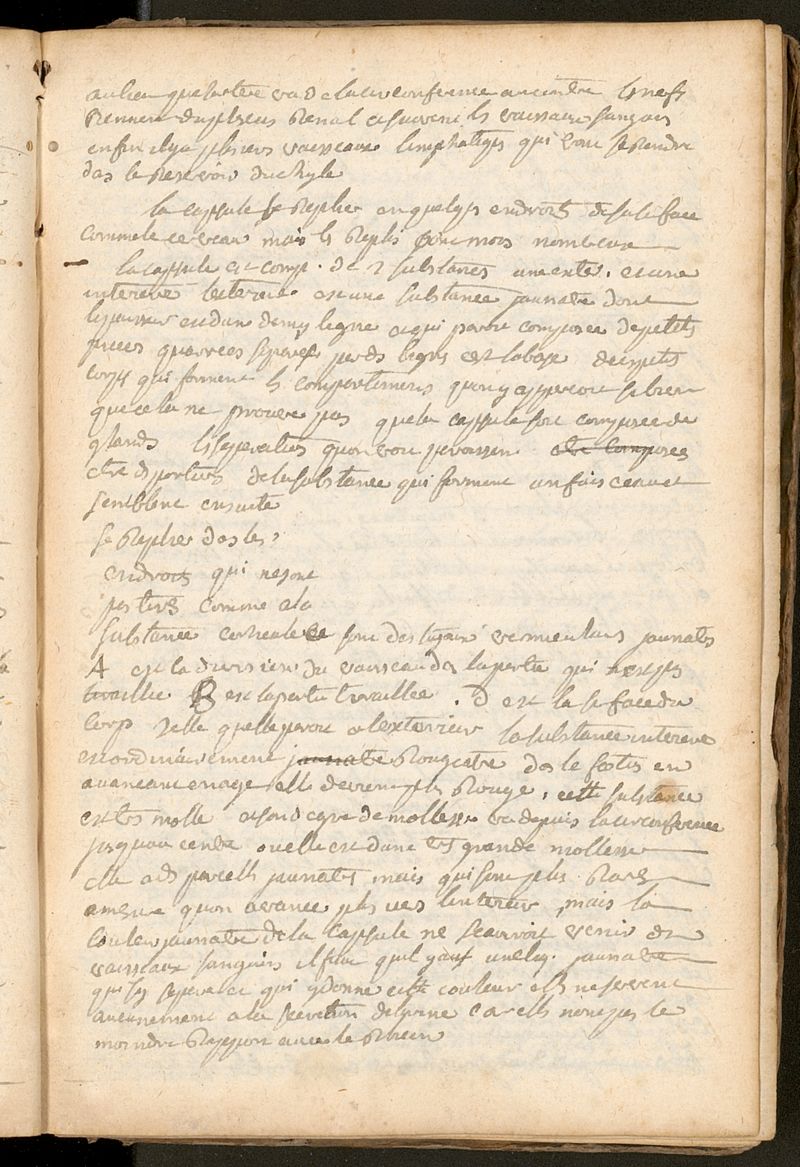 au lieu que lartere va de la circonference au centre ls nefs
viennent du plexus Renal et suivent ls vaisseaux sanguins
enfin il y a plusieurs vaisseaux limphatiqs qui vont se Rendre
das le Reservoir du chyle
la capsule se Replie en quelqs endroits de sa surface
comme le cerveau mais ls Replis sont mois nombreux
la capsule est comp. de 2 substances une exte. et une
interieure lexterie. est une substance jaunatre dont
lepaisseur est dun demy ligne et qui paroit composee de petits
quarrees separés
corps qui forment ls compartimens quon y appercoit si bien
que cela ne prouve pas que la capsule soit composee de
glands ls separations quon voit paroissent etre composees
etre ds portions de la substance qui forment un faisceau et
semblent ensuite
se Replier das les
endroits qui ne sont
pas tires comme a la
substance corticale ce sont des tuyaux vermiculaires jaunatrs
A est la division du vaisseau das la partie qui nest pas
travaillée B est la partie travaillée. D est la surface du
corps telle quelle paroit a lexterieur la substance interieure
est ordinairement jaunatre Rougeatre das le foetus en
avancant en age elle devient plus Rouge, cette substance
est tres molle et son degre de mollesse va depuis la circonference
jusquau centre ou elle est dune tres grande mollesse
elle a ds parcelles jaunatrs mais qui sont plus Rares
a mesure quon avance plus vers linterieur, mais la
couleur jaunatre de la capsule ne scauroit venir de
vaisseaux sanguins il faut quil y ait une liq. jaunatre
qui sy separe et qui y donne cette couleur elles ne servent
aucunement a la secretion de lurine car elles nont pas le
moindre Rapport avec le Rhein